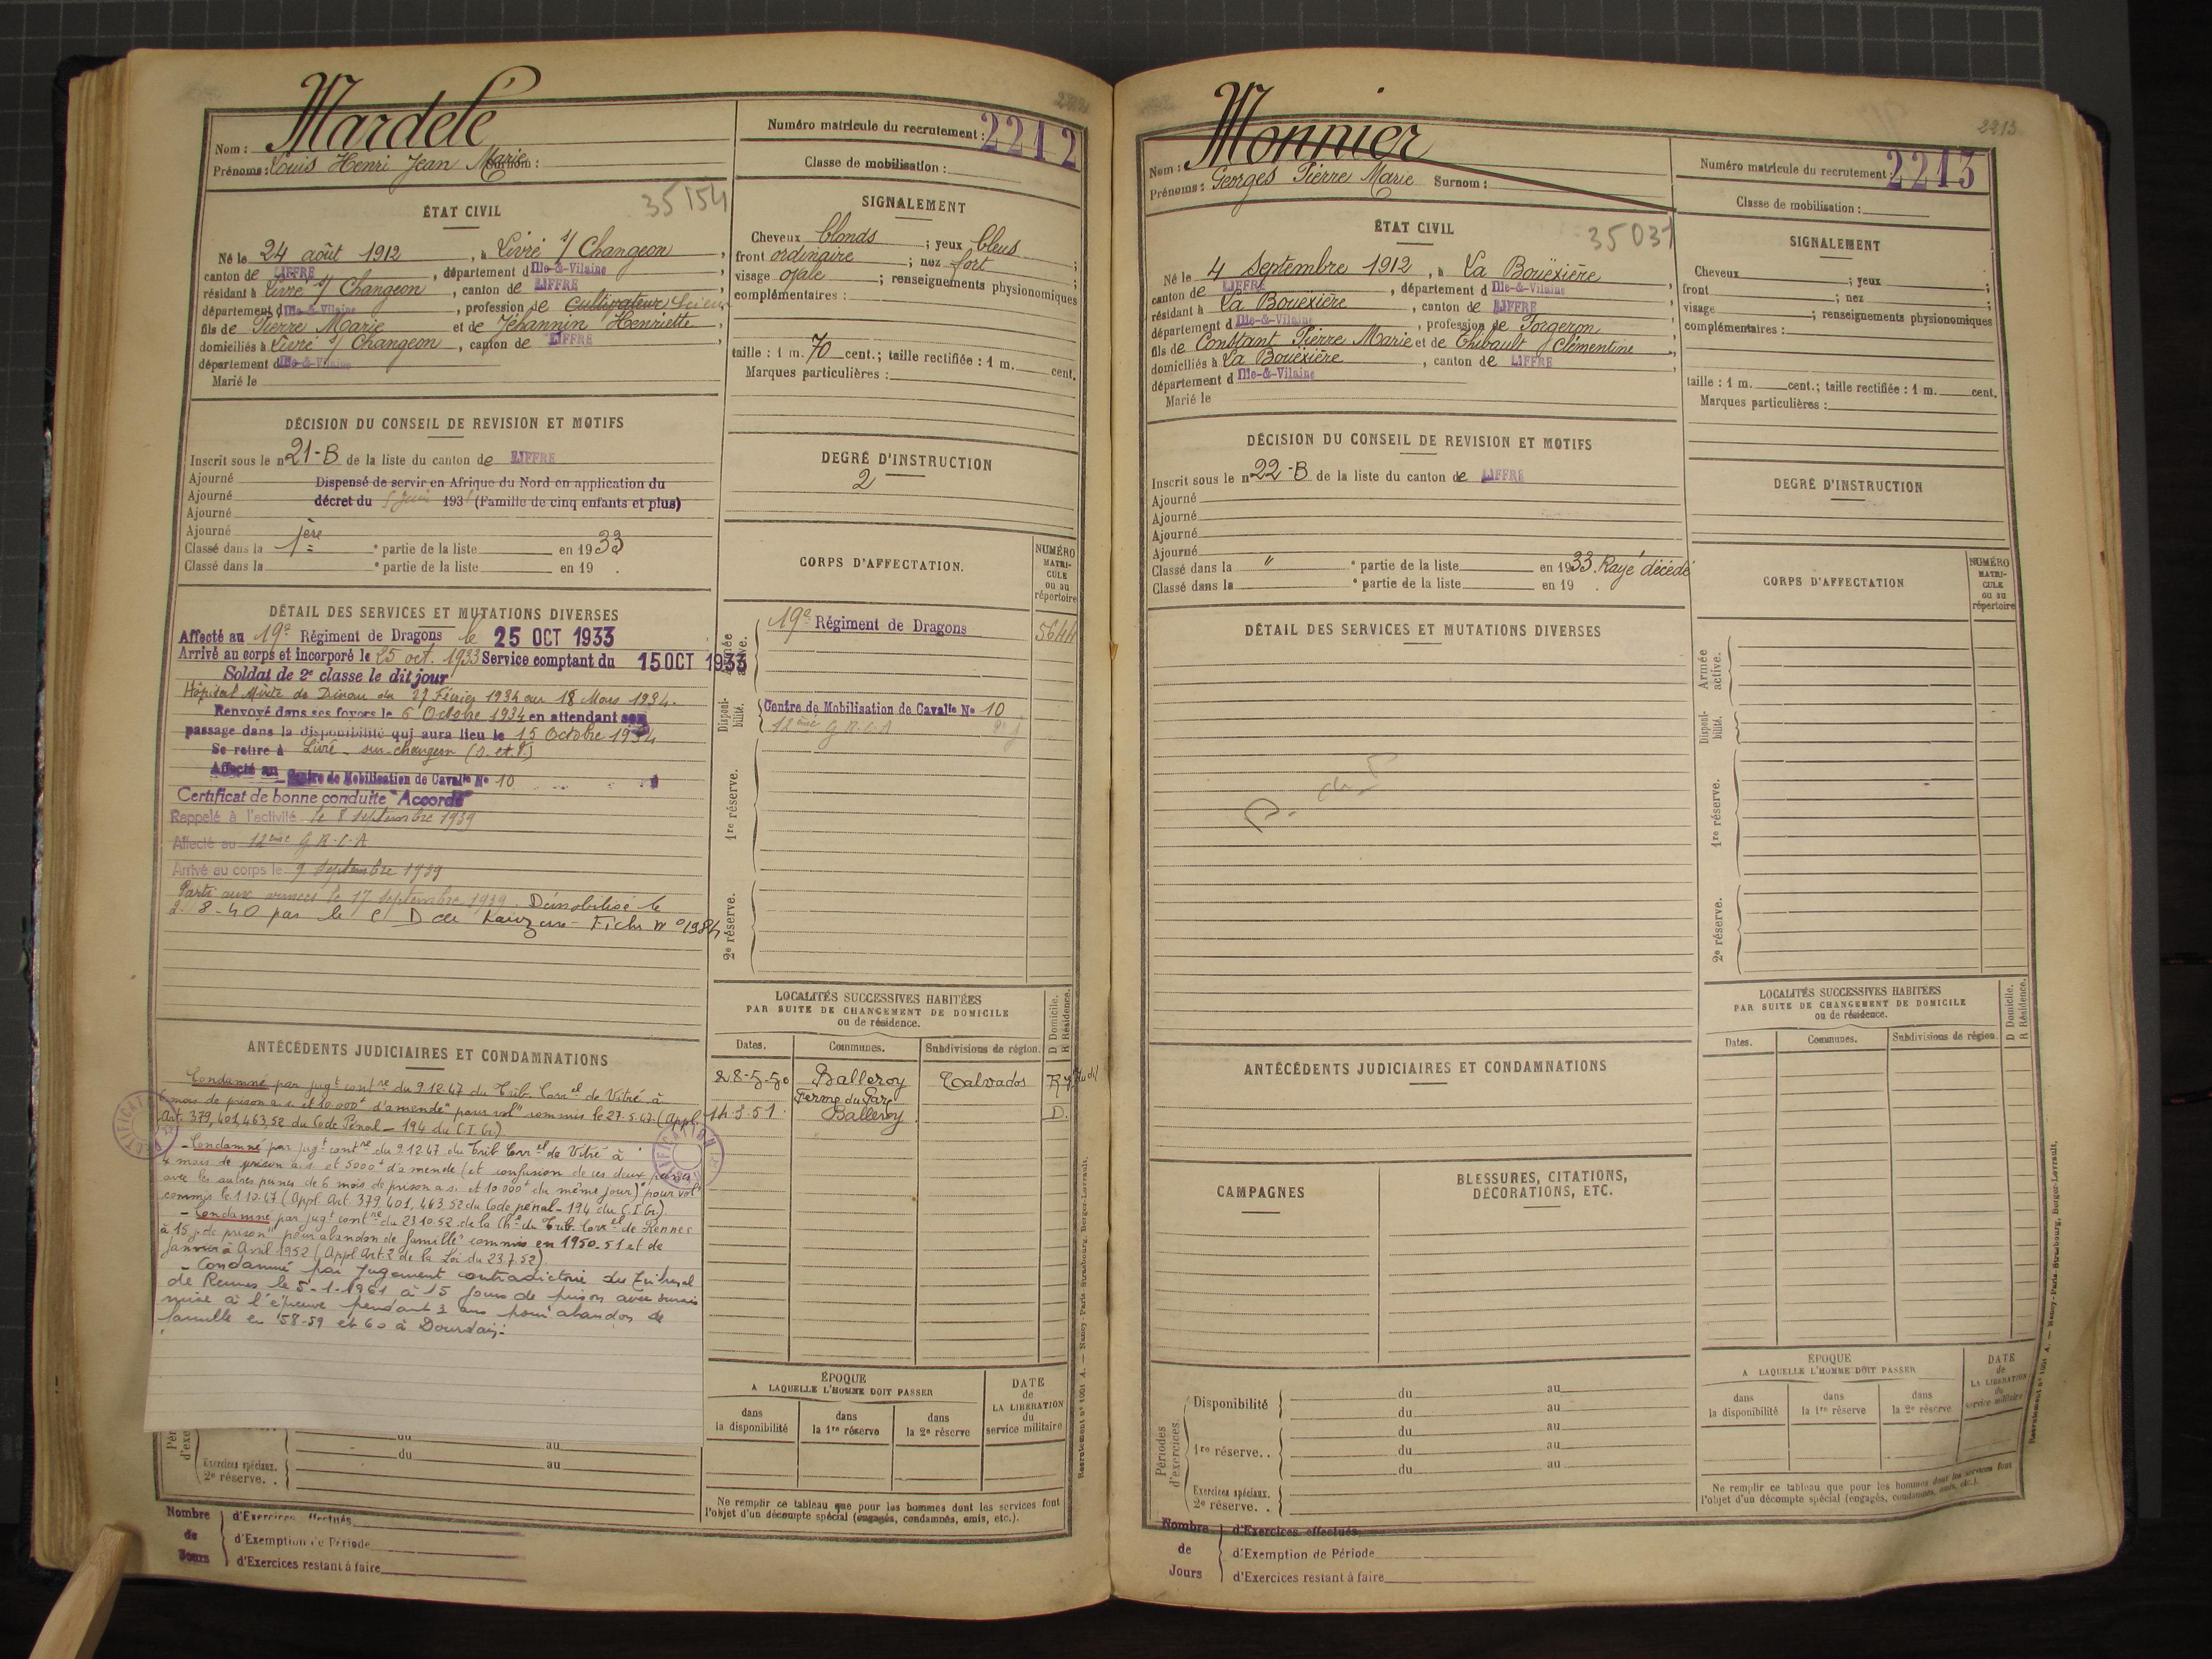 Mardelé
Nom :
Prénoms : Louis Henri Jean Marie Surnom :
Numéro matricule du recrutement : 2212
Classe de mobilisation :
35154
ÉTAT CIVIL
Né le 24 août 1912, à Livré s/ Changeon,
canton de LIFFRE, département d Ille-&-Vilaine
résidant à Livré s/ Changeon, canton de LIFFRE,
département d Ille-&-Vilaine, profession de Cultivateur
fils de Pierre Marie et de Jébannin Henriette,
domiciliés à Livré s/ Changeon, canton de LIFFRE,
département d Ille-&-Vilaine
Marié le
SIGNALEMENT
Cheveux blonds ; yeux bleus ;
front ordinaire ; nez fort ;
visage ovale ; renseignements physionomiques
complémentaires :
taille : 1 m. 70 cent.; taille rectifiée : 1 m. cent.
Marques particulières :
DÉCISION DU CONSEIL DE REVISION ET MOTIFS
Inscrit sous le n° 21-B de la liste du canton de LIFFRE
Ajourné Dispensé de servir en Afrique du Nord en application du
Ajourné décret du 193 (Famille de cinq enfants et plus)
Ajourné
Ajourné
Classé dans la 1ère partie de la liste en 1933
Classé dans la e partie de la liste en 19 .
DEGRÉ D'INSTRUCTION
2
DÉTAIL DES SERVICES ET MUTATIONS DIVERSES
Affecté au 19e Régiment de Dragons le 25 OCT 1933
Arrivé au corps et incorporé le 25 oct. 1933 Service comptant du 15 OCT 1933
Soldat de 2e classe le dit jour
Hôpital Mixte de Dinan du 27 Février 1934 au 18 Mars 1934.
Renvoyé dans ses foyers le 6 Octobre 1934 en attendant son
passage dans la disponibilité qui aura lieu le 15 Octobre 1934
Se retire à Livré-sur-changeon (I. et V.)
Affecté au Centre de Mobilisation de Cavalie No 10
Certificat de bonne conduite "Accordé"
Rappelé à l'activité le 8 septembre 1939
Affecté au 12ème G.R.C.A
Arrivé au corps le 9 septembre 1939
Parti aux armées le 17 septembre 1939. Démobilisé le
2-8-40 par le C D de Lauzun - Fiche n° 1984
CORPS D'AFFECTATION.
NUMÉRO MATRICULE ou au répertoire
Armée active.
19e Régiment de Dragons 5644
Disponibilité.
Centre de Mobilisation de Cavalie No 10
12ème G.R.C.A
1re réserve.
2e réserve.
ANTÉCÉDENTS JUDICIAIRES ET CONDAMNATIONS
Condamné par jugt contre du 9.12.47 du Trib. Correl de Vitré à
6 mois de prison a.s. et 10.000f d'amende "pour vol" commis le 27.5.47. (Appl.
Art. 379, 401, 463, 52 du Code Pénal - 194 du C.I.Cr.)
- Condamné par jugt contre du 9.12.47 du Trib Correl de Vitré à
4 mois de prison a.s. et 5000f d'amende (et confusion de ces deux peines
avec les autres peines de 6 mois de prison a.s. et 10.000f du même jour) "pour vol"
commis le 1.10.47 (Appl. Art. 379, 401, 463, 52 du Code pénal - 194 du C.I.Cr.)
- Condamné par jugt contre du 23.10.52 de la Che du Trib. Correl de Rennes
à 15 j. de prison "pour abandon de famille" commis en 1950-51 et de
Janvier à Avril 1952 (Appl. Art. 2 de la Loi du 23.7.52)
- Condamné par jugement contradictoire du Tribunal
de Rennes le 5-1-1961 à 15 jours de prison avec sursis
mise à l'épreuve pendant 3 ans pour abandon de
famille en 58-59 et 60 à Dourdain.
LOCALITÉS SUCCESSIVES HABITÉES
PAR SUITE DE CHANGEMENT DE DOMICILE
ou de résidence.
D Domicile. R Résidence.
Dates. Communes. Subdivisions de région.
28-5-50 Balleroy Calvados R
Ferme du Parc
14.3.51 Balleroy D.
ÉPOQUE
A LAQUELLE L'HOMME DOIT PASSER
dans la disponibilité
dans la 1re réserve
dans la 2e réserve
DATE de LA LIBÉRATION du service militaire
du au
du au
Exercices spéciaux.
2e réserve. .
Ne remplir ce tableau que pour les hommes dont les services font
l'objet d'un décompte spécial (engagés, condamnés, omis, etc.).
Nombre de Jours
d'Exercices effectués
d'Exemption de Période
d'Exercices restant à faire
Recrutement n° 1001 A. — Nancy-Paris-Strasbourg, Berger-Levrault.
2213
Monnier
Nom :
Prénoms : Georges Pierre Marie Surnom :
Numéro matricule du recrutement : 2213
Classe de mobilisation :
35031
ÉTAT CIVIL
Né le 4 Septembre 1912, à La Bouëxière
canton de LIFFRE, département d Ille-&-Vilaine
résidant à La Bouëxière, canton de LIFFRE
département d Ille-&-Vilaine, profession de Forgeron
fils de Constant Pierre Marie et de Thibault Clémentine
domiciliés à La Bouëxière, canton de LIFFRE
département d Ille-&-Vilaine
Marié le
SIGNALEMENT
Cheveux ; yeux ;
front ; nez ;
visage ; renseignements physionomiques
complémentaires :
taille : 1 m. cent.; taille rectifiée : 1 m. cent.
Marques particulières :
DÉCISION DU CONSEIL DE REVISION ET MOTIFS
Inscrit sous le n° 22-B de la liste du canton de LIFFRE
Ajourné
Ajourné
Ajourné
Ajourné
Classé dans la " e partie de la liste en 1933. Rayé décédé
Classé dans la e partie de la liste en 19 .
DEGRÉ D'INSTRUCTION
DÉTAIL DES SERVICES ET MUTATIONS DIVERSES
CORPS D'AFFECTATION
NUMÉRO MATRICULE ou au répertoire
Armée active.
Disponibilité.
1re réserve.
2e réserve.
ANTÉCÉDENTS JUDICIAIRES ET CONDAMNATIONS
LOCALITÉS SUCCESSIVES HABITÉES
PAR SUITE DE CHANGEMENT DE DOMICILE
ou de résidence.
D Domicile. R Résidence.
Dates. Communes. Subdivisions de région.
CAMPAGNES
BLESSURES, CITATIONS,
DÉCORATIONS, ETC.
Périodes d'exercices
Disponibilité du au
du au
1re réserve. . du au
du au
du au
Exercices spéciaux.
2e réserve. .
ÉPOQUE
A LAQUELLE L'HOMME DOIT PASSER
dans la disponibilité
dans la 1re réserve
dans la 2e réserve
DATE de LA LIBÉRATION du service militaire
Ne remplir ce tableau que pour les hommes dont les services font
l'objet d'un décompte spécial (engagés, condamnés, omis, etc.).
Nombre de Jours
d'Exercices effectués
d'Exemption de Période
d'Exercices restant à faire
Recrutement n° 1001 A. — Nancy-Paris-Strasbourg, Berger-Levrault.